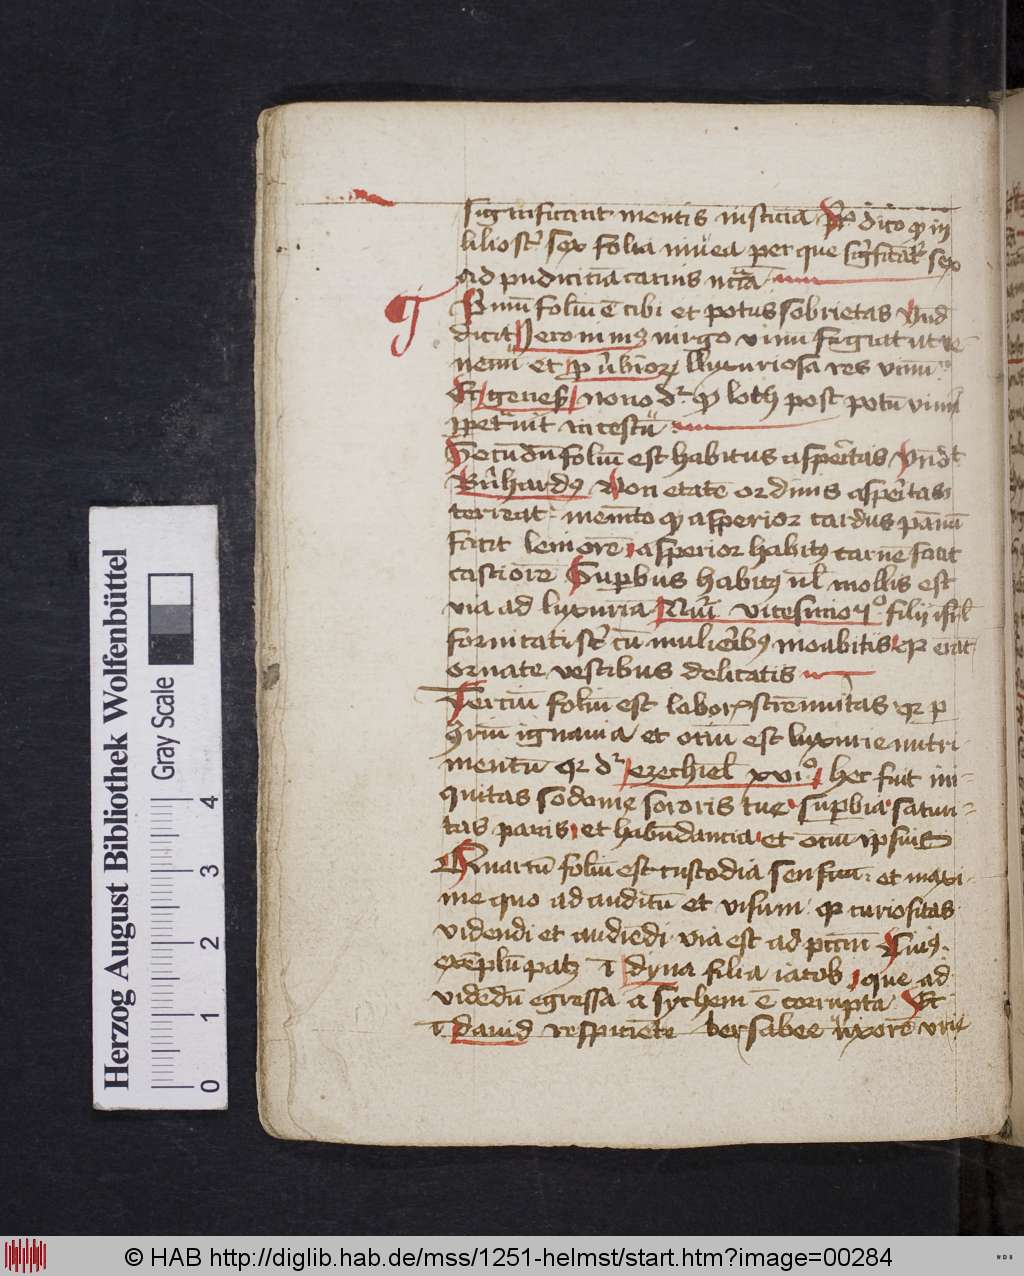 significant mentis insticia Ro dico qp in
lilio st sex folia nivea per que significat sex
ad pudicicia carnis
Pmu foliu e cibi et potus sobrietas Vnd
dicit Jeronimus virgo vinu fugiat ut ve
nenu et p u'bior luxuriosa res vinu
Et genes nono dr qp loth post potu vini
ppet'vit incestu
Secundu foliu est habitus asp'itas vnd
B'nhardus Non etate ordinis asp'itas
terreat memto qp asperior cardus panu
facit leniore asperior habitus carne facit
castiore Sup'bus habitus vl mollis est
via ad luxuria Nu'i vicesimo filii isrl
fornicati st cu mulieribus moabitis qr erat
ornate vestibus delicatis
Terciu foliu est labor strennuitas qr p
ignavia et ociu est luxurie nutri
mentu qr dr ezechiel xvio hec fuit ini
quitas sodome sororis tue sup'bia satur
tas panis et habundancia et ociu ipsius
Quartu foliu est custodia sensuu et maxi
me quo ad auditu et visum qr curiositas
videndi et audiedi via est ad pccm Cuius
exeplu patz i dyna filia iacob que ad
videdu egressa a sychem e corrupta Et
i david respiciete bersabee uxore vrie
Herzog August Bibliothek Wolfenbüttel
Gray Scale
0 1 2 3 4
© HAB http://diglib.hab.de/mss/1251-helmst/start.htm?image=00284